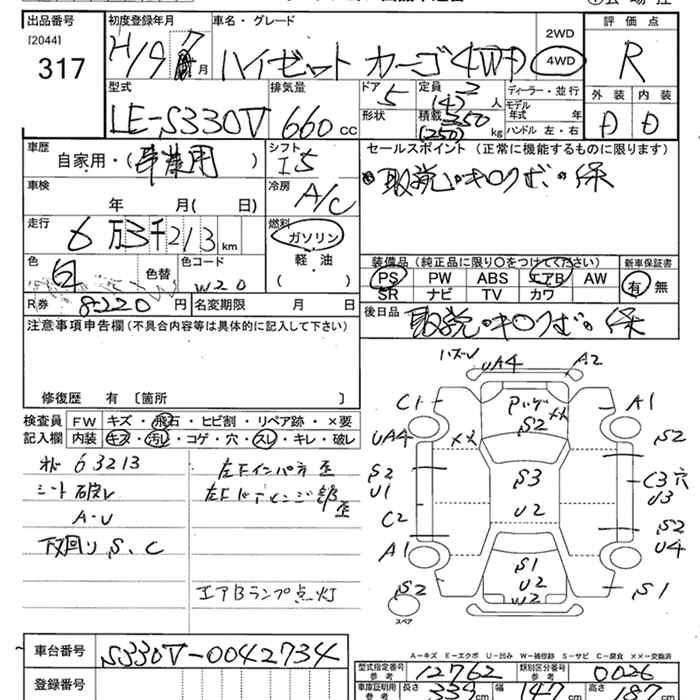 出品番号
[2044]
317
初度登録年月
H19 7月
車名・グレード
ハイゼット カーゴ 4WD
2WD
4WD
評価点
R
外装 内装
D D
型式
LE-S330V
排気量
660 cc
ドア
5
形状
定員 2
(4)人
積載 350
(250) kg
ディーラー・並行
モデル
年式 年
ハンドル 左・右
車歴
自家用・(事業用)
シフト
I5
セールスポイント (正常に機能するものに限ります)
取説・キロクボ・保
車検
年 月(日)
冷房
A/C
走行
6万3千213km
燃料
ガソリン
軽・油
( )
装備品(純正品に限り○をつけてください)
PS PW ABS エアB AW
SR ナビ TV カワ
新車保証書
有 無
色
白
色替
色コード
W20
R券 8220円
名変期限 月 日
後日品
取説・キロクボ・保
注意事項申告欄(不具合内容等は具体的に記入して下さい)
修復歴 有〔箇所 〕
検査員
記入欄
FW キズ・飛石・ヒビ割・リペア跡・×要
内装 キズ・汚レ・コゲ・穴・スレ・キレ・破レ
オド 63213
シート破レ
A・U
下回り S、C
左Fインパネ歪
エアBランプ点灯
ハズレ
UA4
A2
C1
S2
A1
UA4
S2
S2
U1
S3
C3穴
U3
C2
U2
S2
U4
A1
S1
U2
W2
S2
S1
スペア
A-キズ E-エクボ U-凹み W-補修跡 S-サビ C-腐食 ××-交換済
車台番号
S330V-0042734
登録番号
型式指定番号
参考
12762
類別区分番号
参考
0026
車庫証明用
参考
長さ 339cm
幅 147cm
高さ 187cm